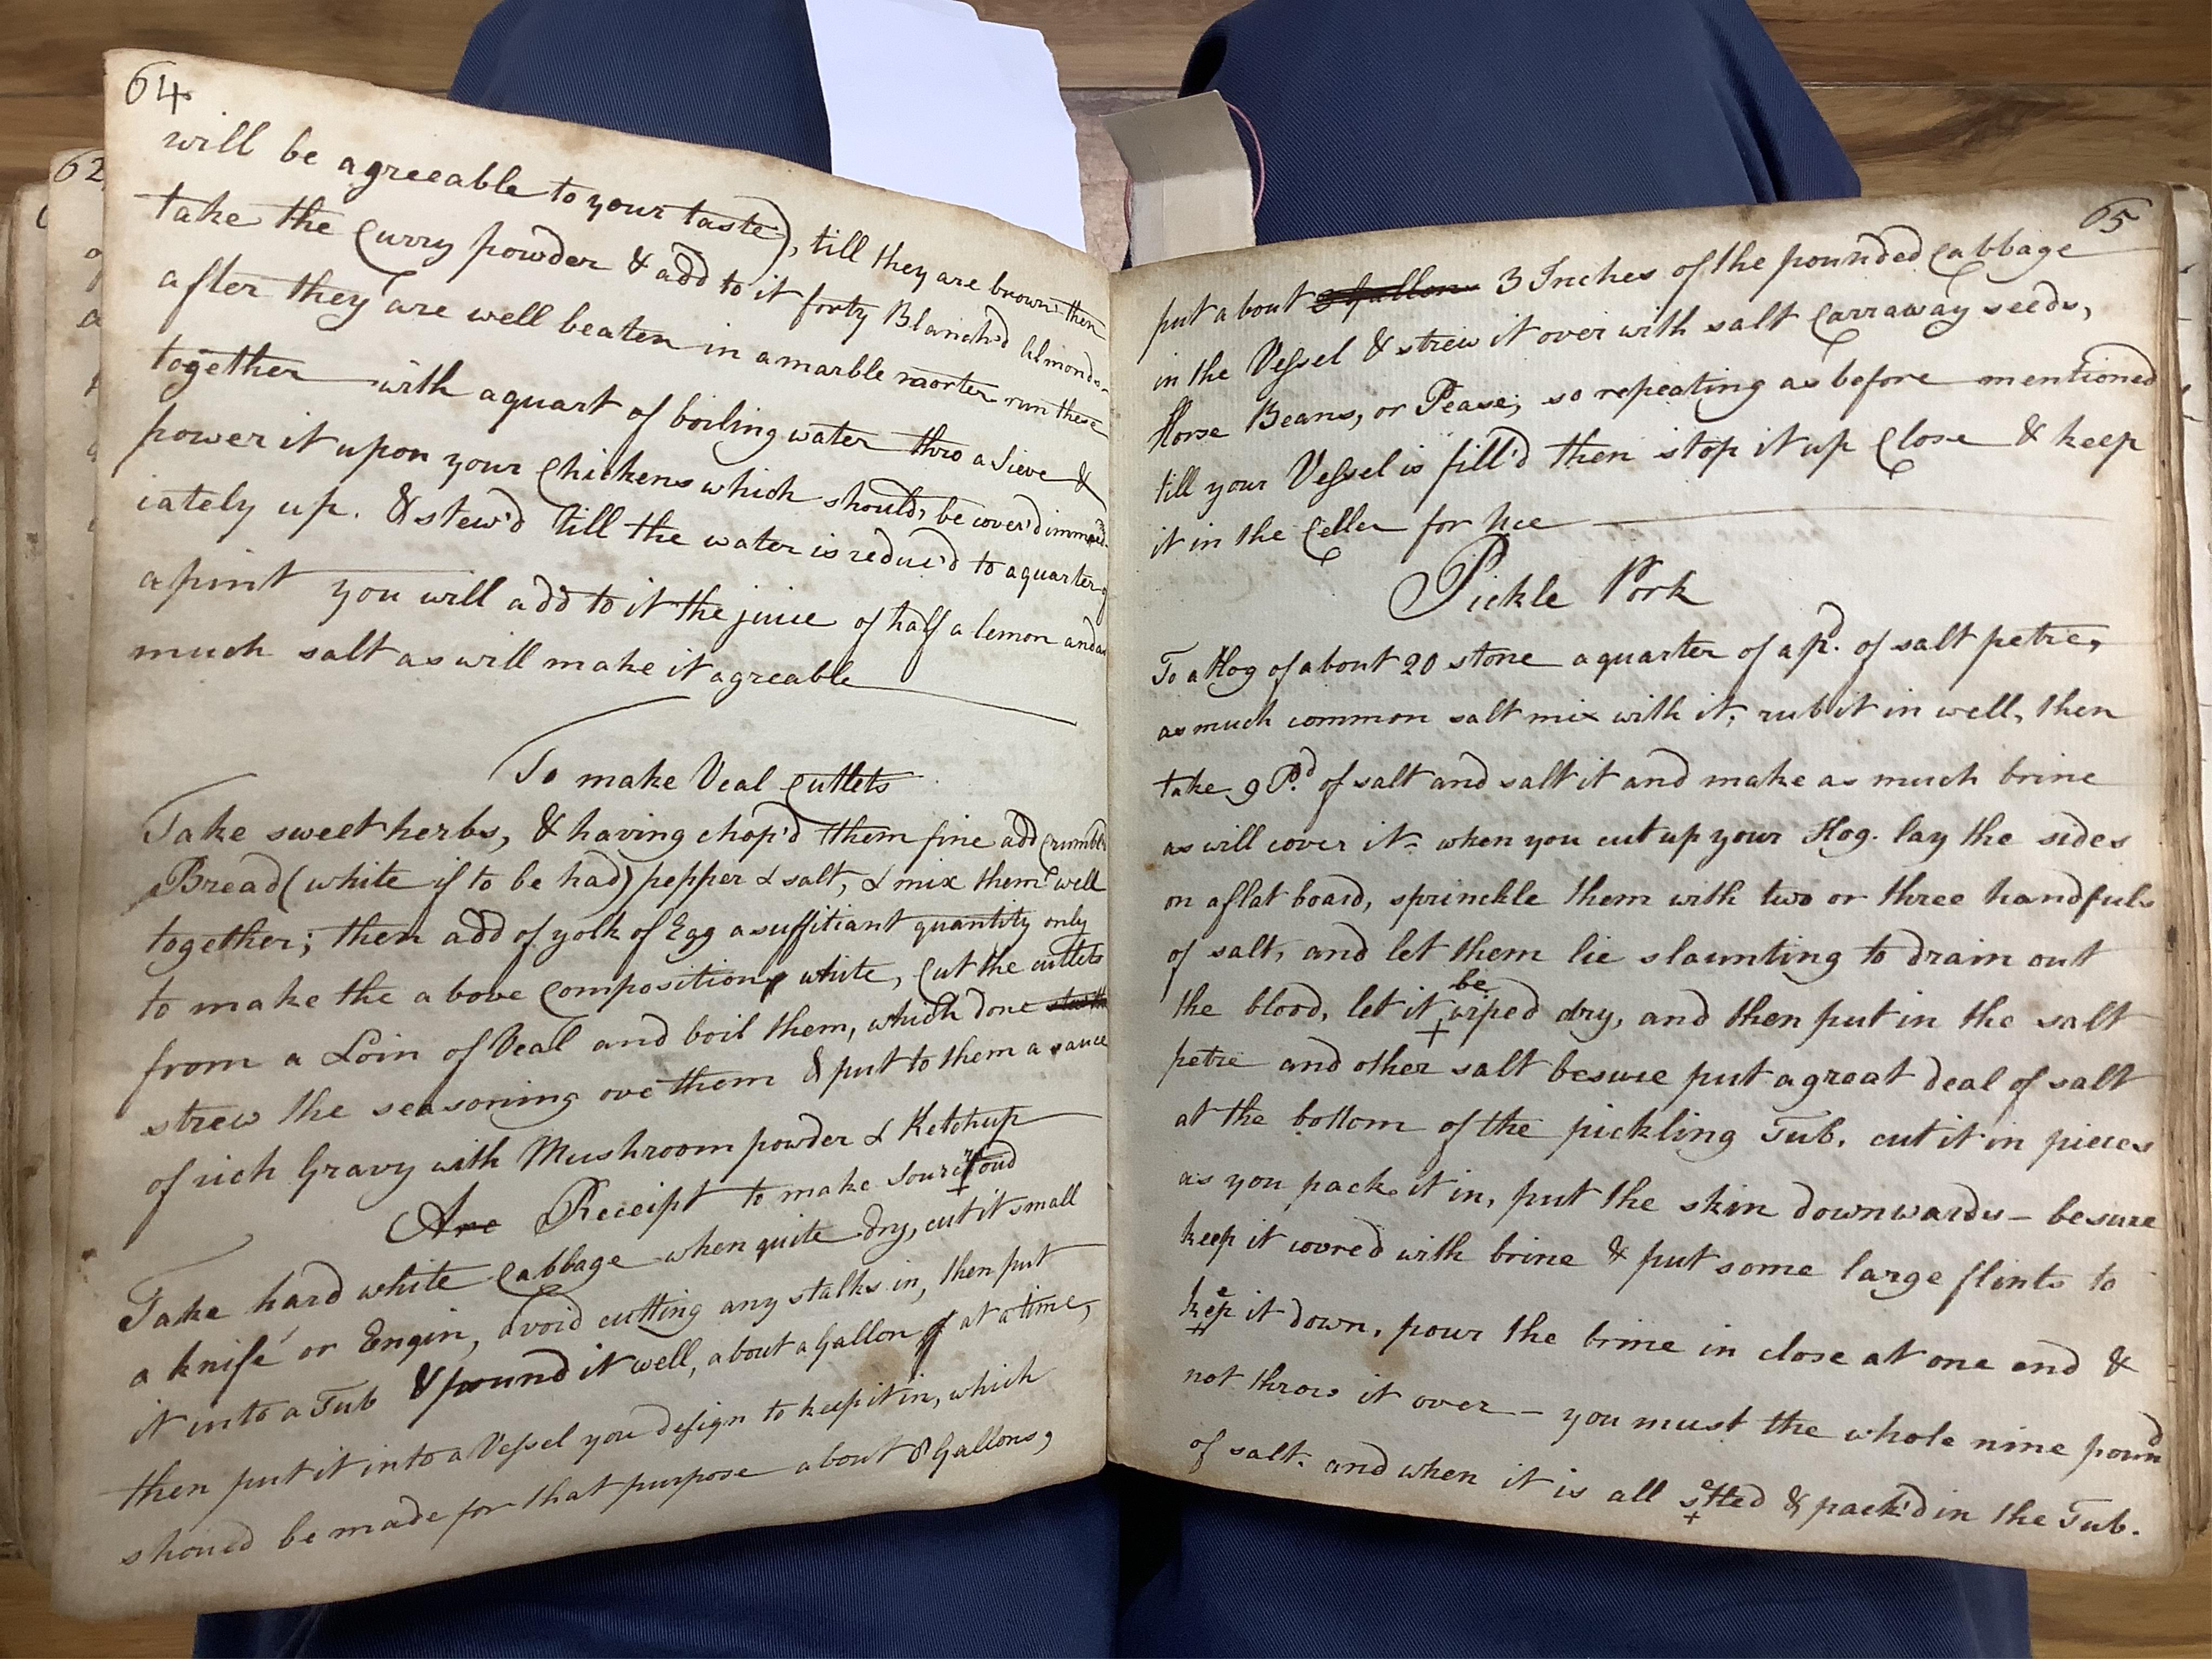 64
will be agreeable to your taste), till they are brown then
take the Curry powder & add to it forty Blanch'd Almonds
after they are well beaten in a marble morter run these
together with a quart of boiling water thro a Sieve &
power it upon your Chickens which should, be cover'd immed
iately up. & stew'd till the water is reduc'd to a quarter of
a pint you will add to it the juice of half a lemon and as
much salt as will make it agreable
To make Veal Cutlets
Take sweet herbs, & having chop'd them fine add Crumbl'd
Bread (white if to be had) pepper & salt, & mix them well
together; then add of yolk of Egg a suffitiant quantity only
to make the above Composition white, Cut the cutlets
from a Loin of Veal and boil them, which done
strew the seasoning ove them & put to them a sauce
of rich Gravy with Mushroom powder & Ketchup
Are Receipt to make Sour Croud
Take hard white Cabbage when quite dry, cut it small
a knife or Engin, avoid cutting any stalks in, then put
it into a Tub & pound it well, about a Gallon at a time,
then put it into a Vessel you design to keep it in, which
shoued be made for that purpose about 8 Gallons,
62
65
put about 3 Gallons 3 Inches of the pounded Cabbage
in the Vessel & strew it over with salt Carraway seeds,
Horse Beans, or Pease; so repeating as before mentioned
till your Vessel is fill'd then stop it up Close & keep
it in the Celler for Uce
Pickle Pork
To a Hog of about 20 stone a quarter of a pd. of salt petre,
as much common salt mix with it, rub it in well, then
take 9 Pd. of salt and salt it and make as much brine
as will cover it- when you cut up your Hog. lay the sides
on a flat board, sprinckle them with two or three handfuls
of salt, and let them lie slaunting to drain out
the blood, let it be wiped dry, and then put in the salt
petre and other salt besure put a great deal of salt
at the bottom of the pickling Tub. cut it in pieces
as you pack it in, put the skin downwards - besure
keep it covred with brine & put some large flints to
keep it down, pour the brine in close at one end &
not throw it over - you must the whole nine pound
of salt. and when it is all salted & pack'd in the Tub.